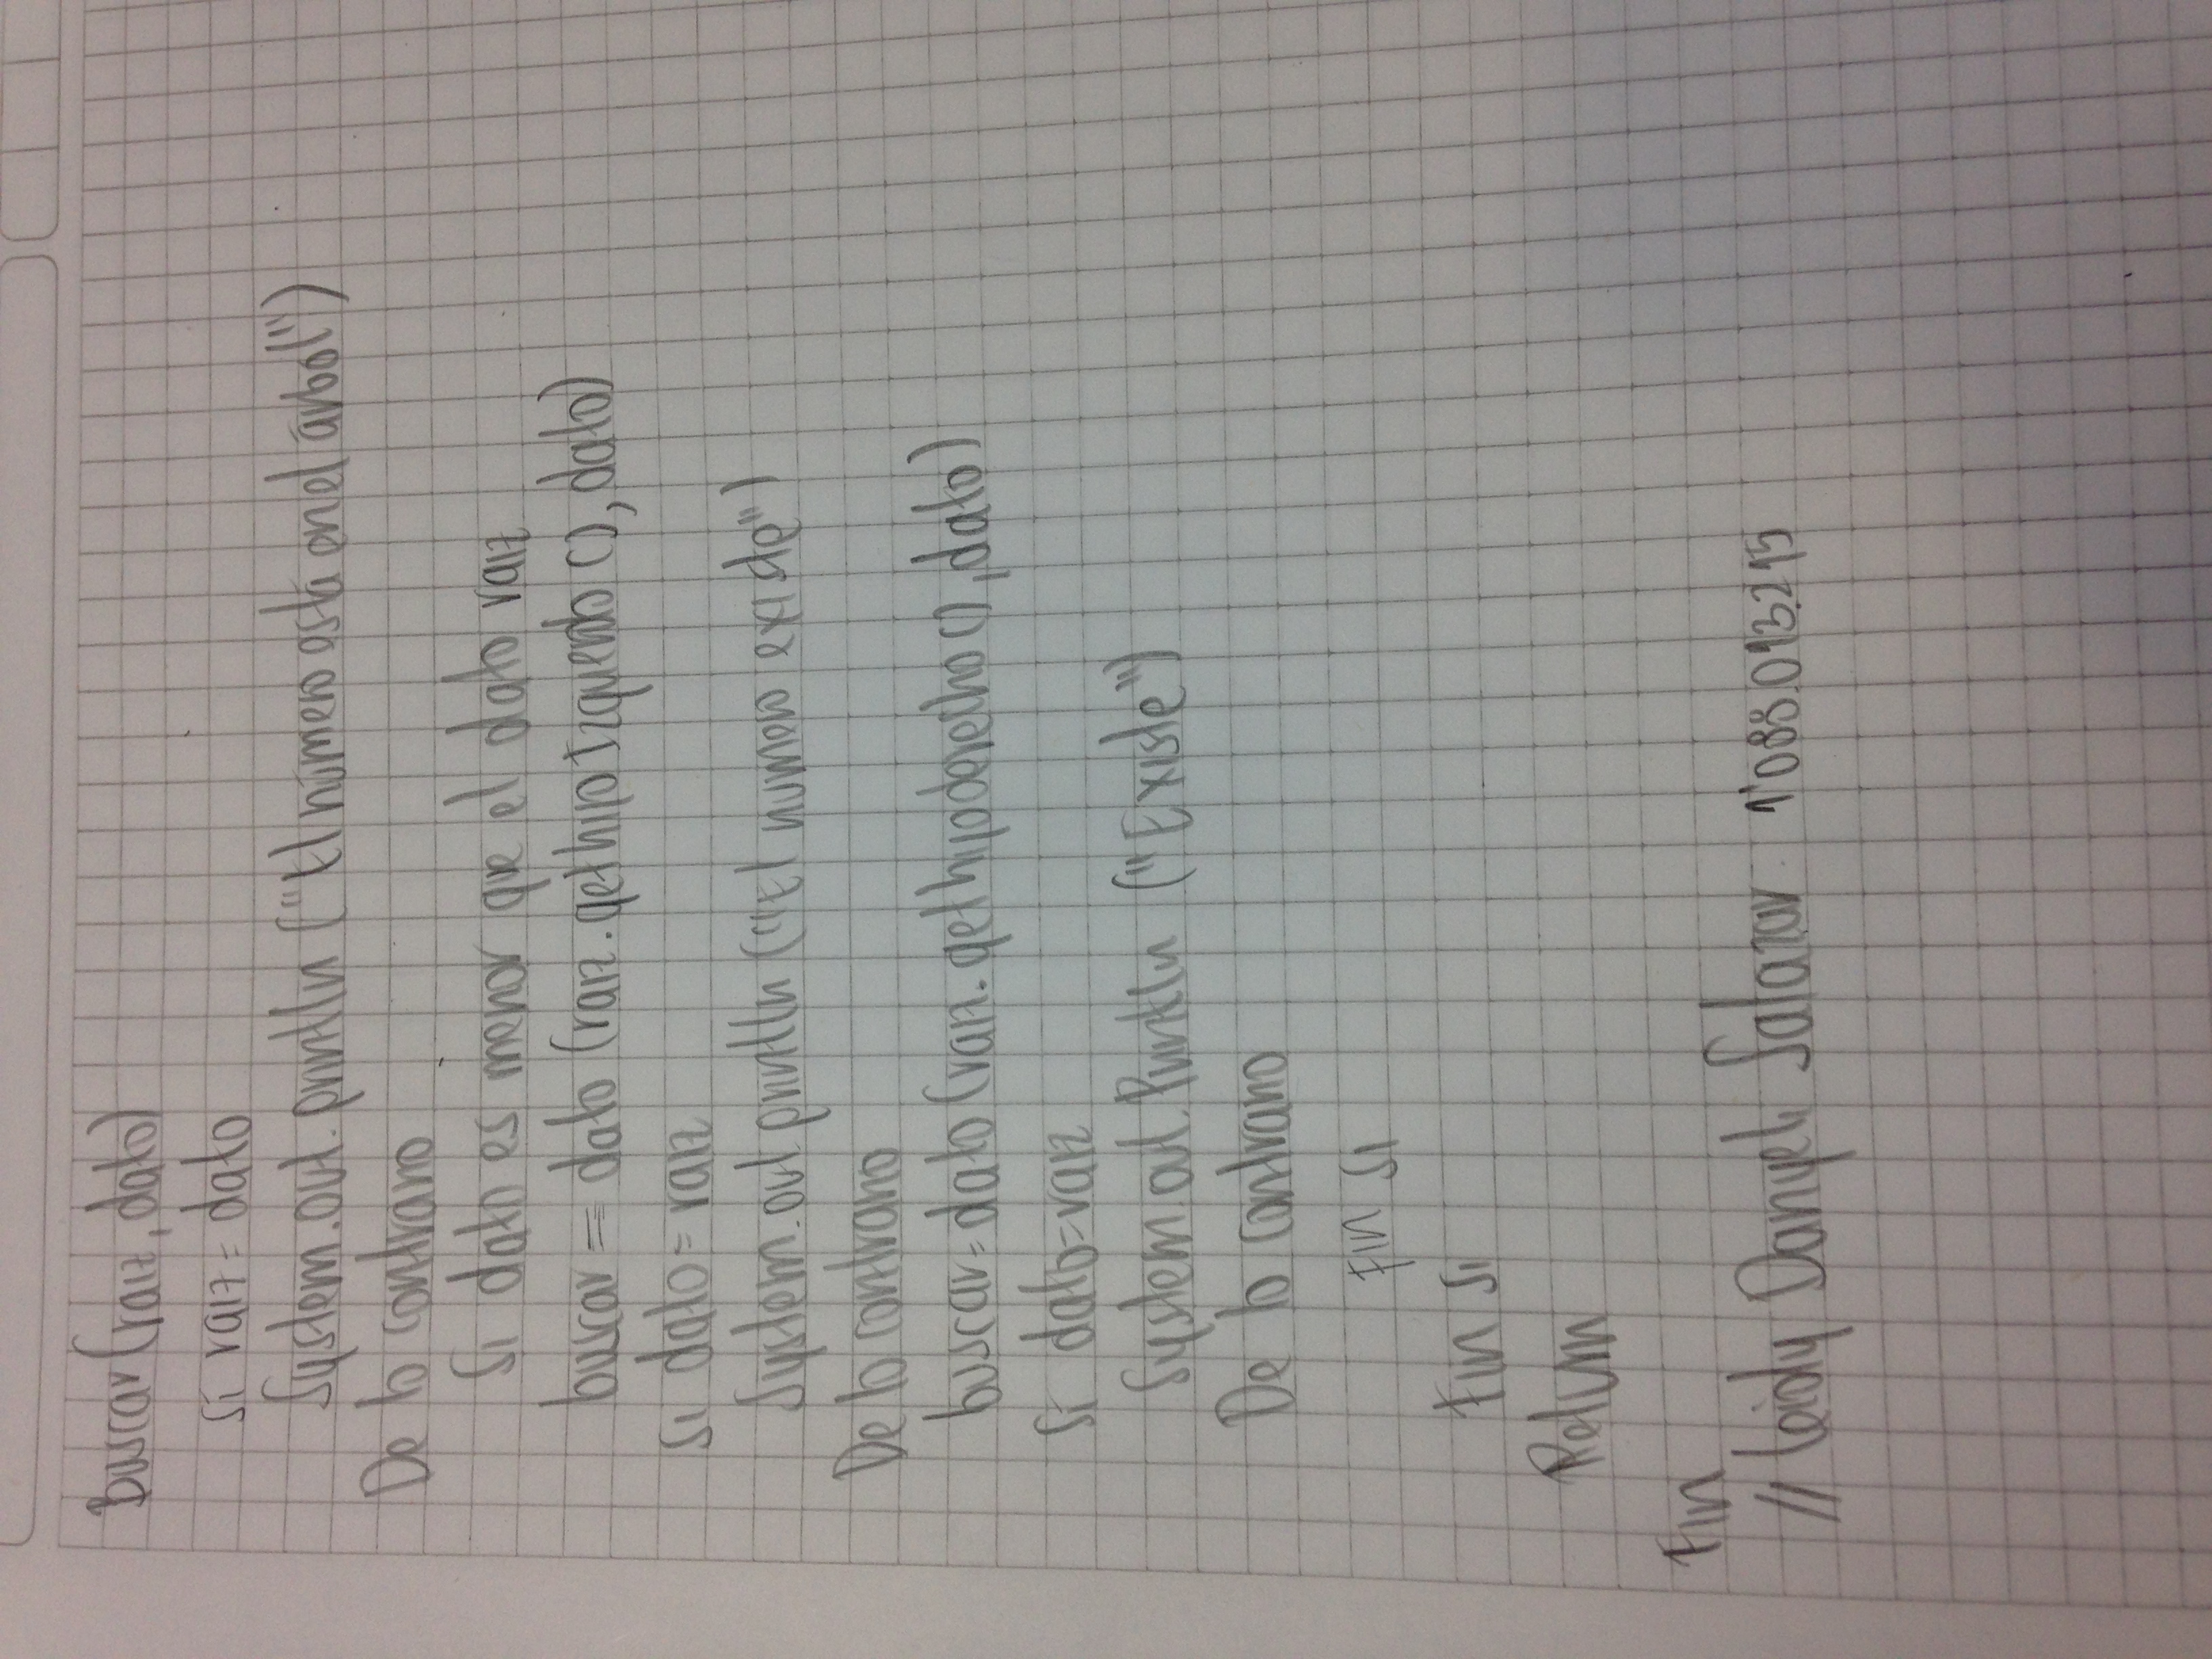 Buscar (raiz, dato)
si raiz = dato
System.out.println ("El número está en el árbol")
De lo contrario
Si dato es menor que el dato raiz
buscar = dato (raiz.gethijoIzquierdo (), dato)
si dato = raiz
System.out.println ("El numero existe")
De lo contrario
buscar = dato (raiz.gethijoderecho (), dato)
Si dato = raiz
System.out.Println ("Existe")
De lo contrario
Fin si
Fin Si
Return
Fin
// Leidy Danyeli Salazar 1'088.013.215